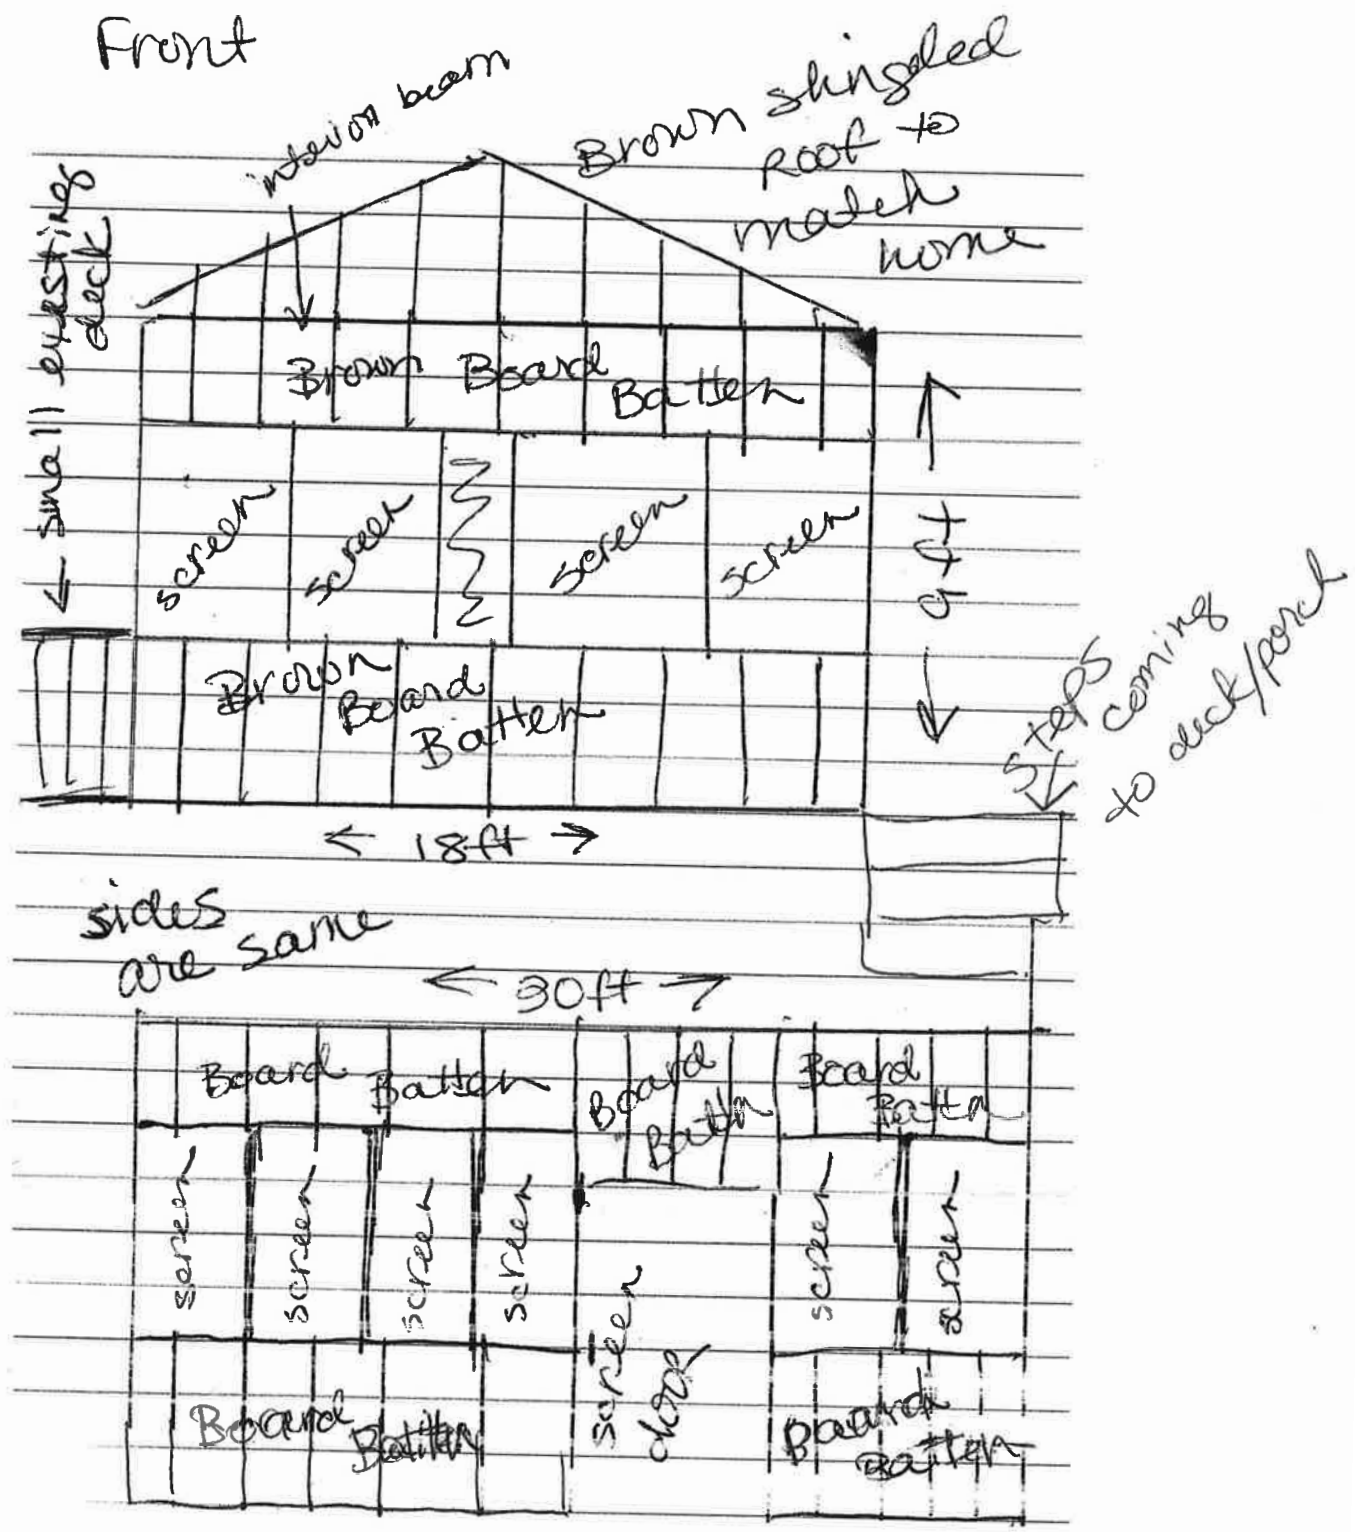 Front
interior beam
Brown shingled
roof to
match
home
← small existing
deck
Brown Board
Batten
screen
screen
screen
screen
9 ft
Brown
Board
Batten
steps
coming
to deck/porch
← 18ft →
sides
are same
← 30ft →
Board Batten
Board
Battn
Board
Battn
screen
screen
screen
screen
screen
door
screen
screen
Board
Batten
Board
Batten